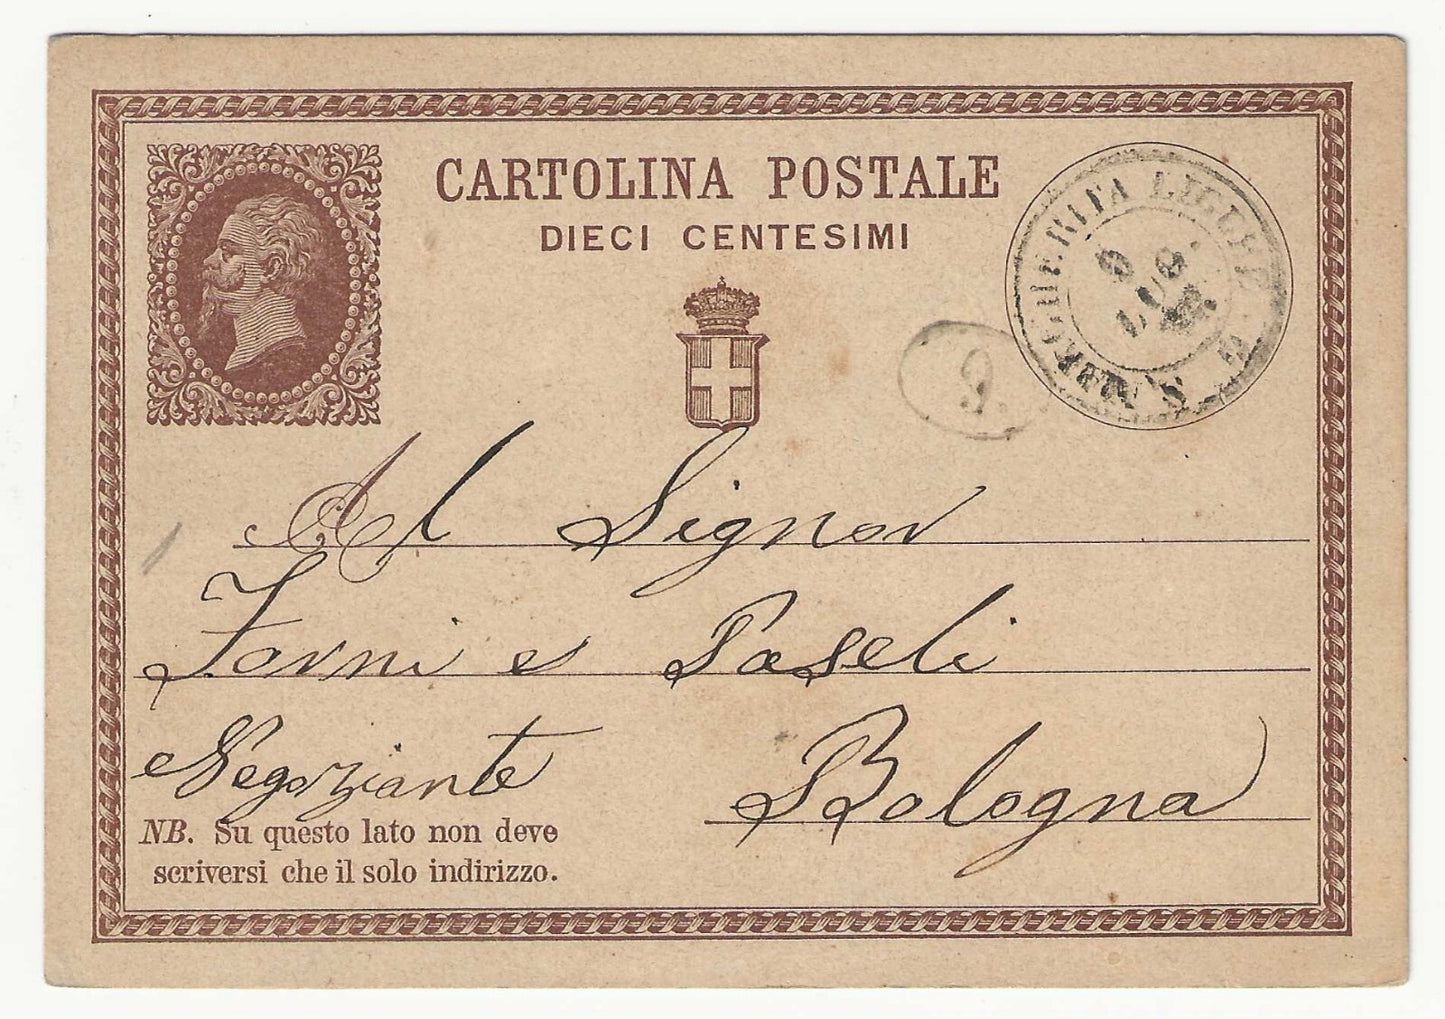 CARTOLINA POSTALE
DIECI CENTESIMI
S. MARGHERITA LIGURE
9
LUG
Al Signor
Zarri e Paseli
Negoziante
Bologna
NB. Su questo lato non deve
scriversi che il solo indirizzo.